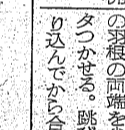 の羽根の両端を
タつかせる。跳
り込んでから合